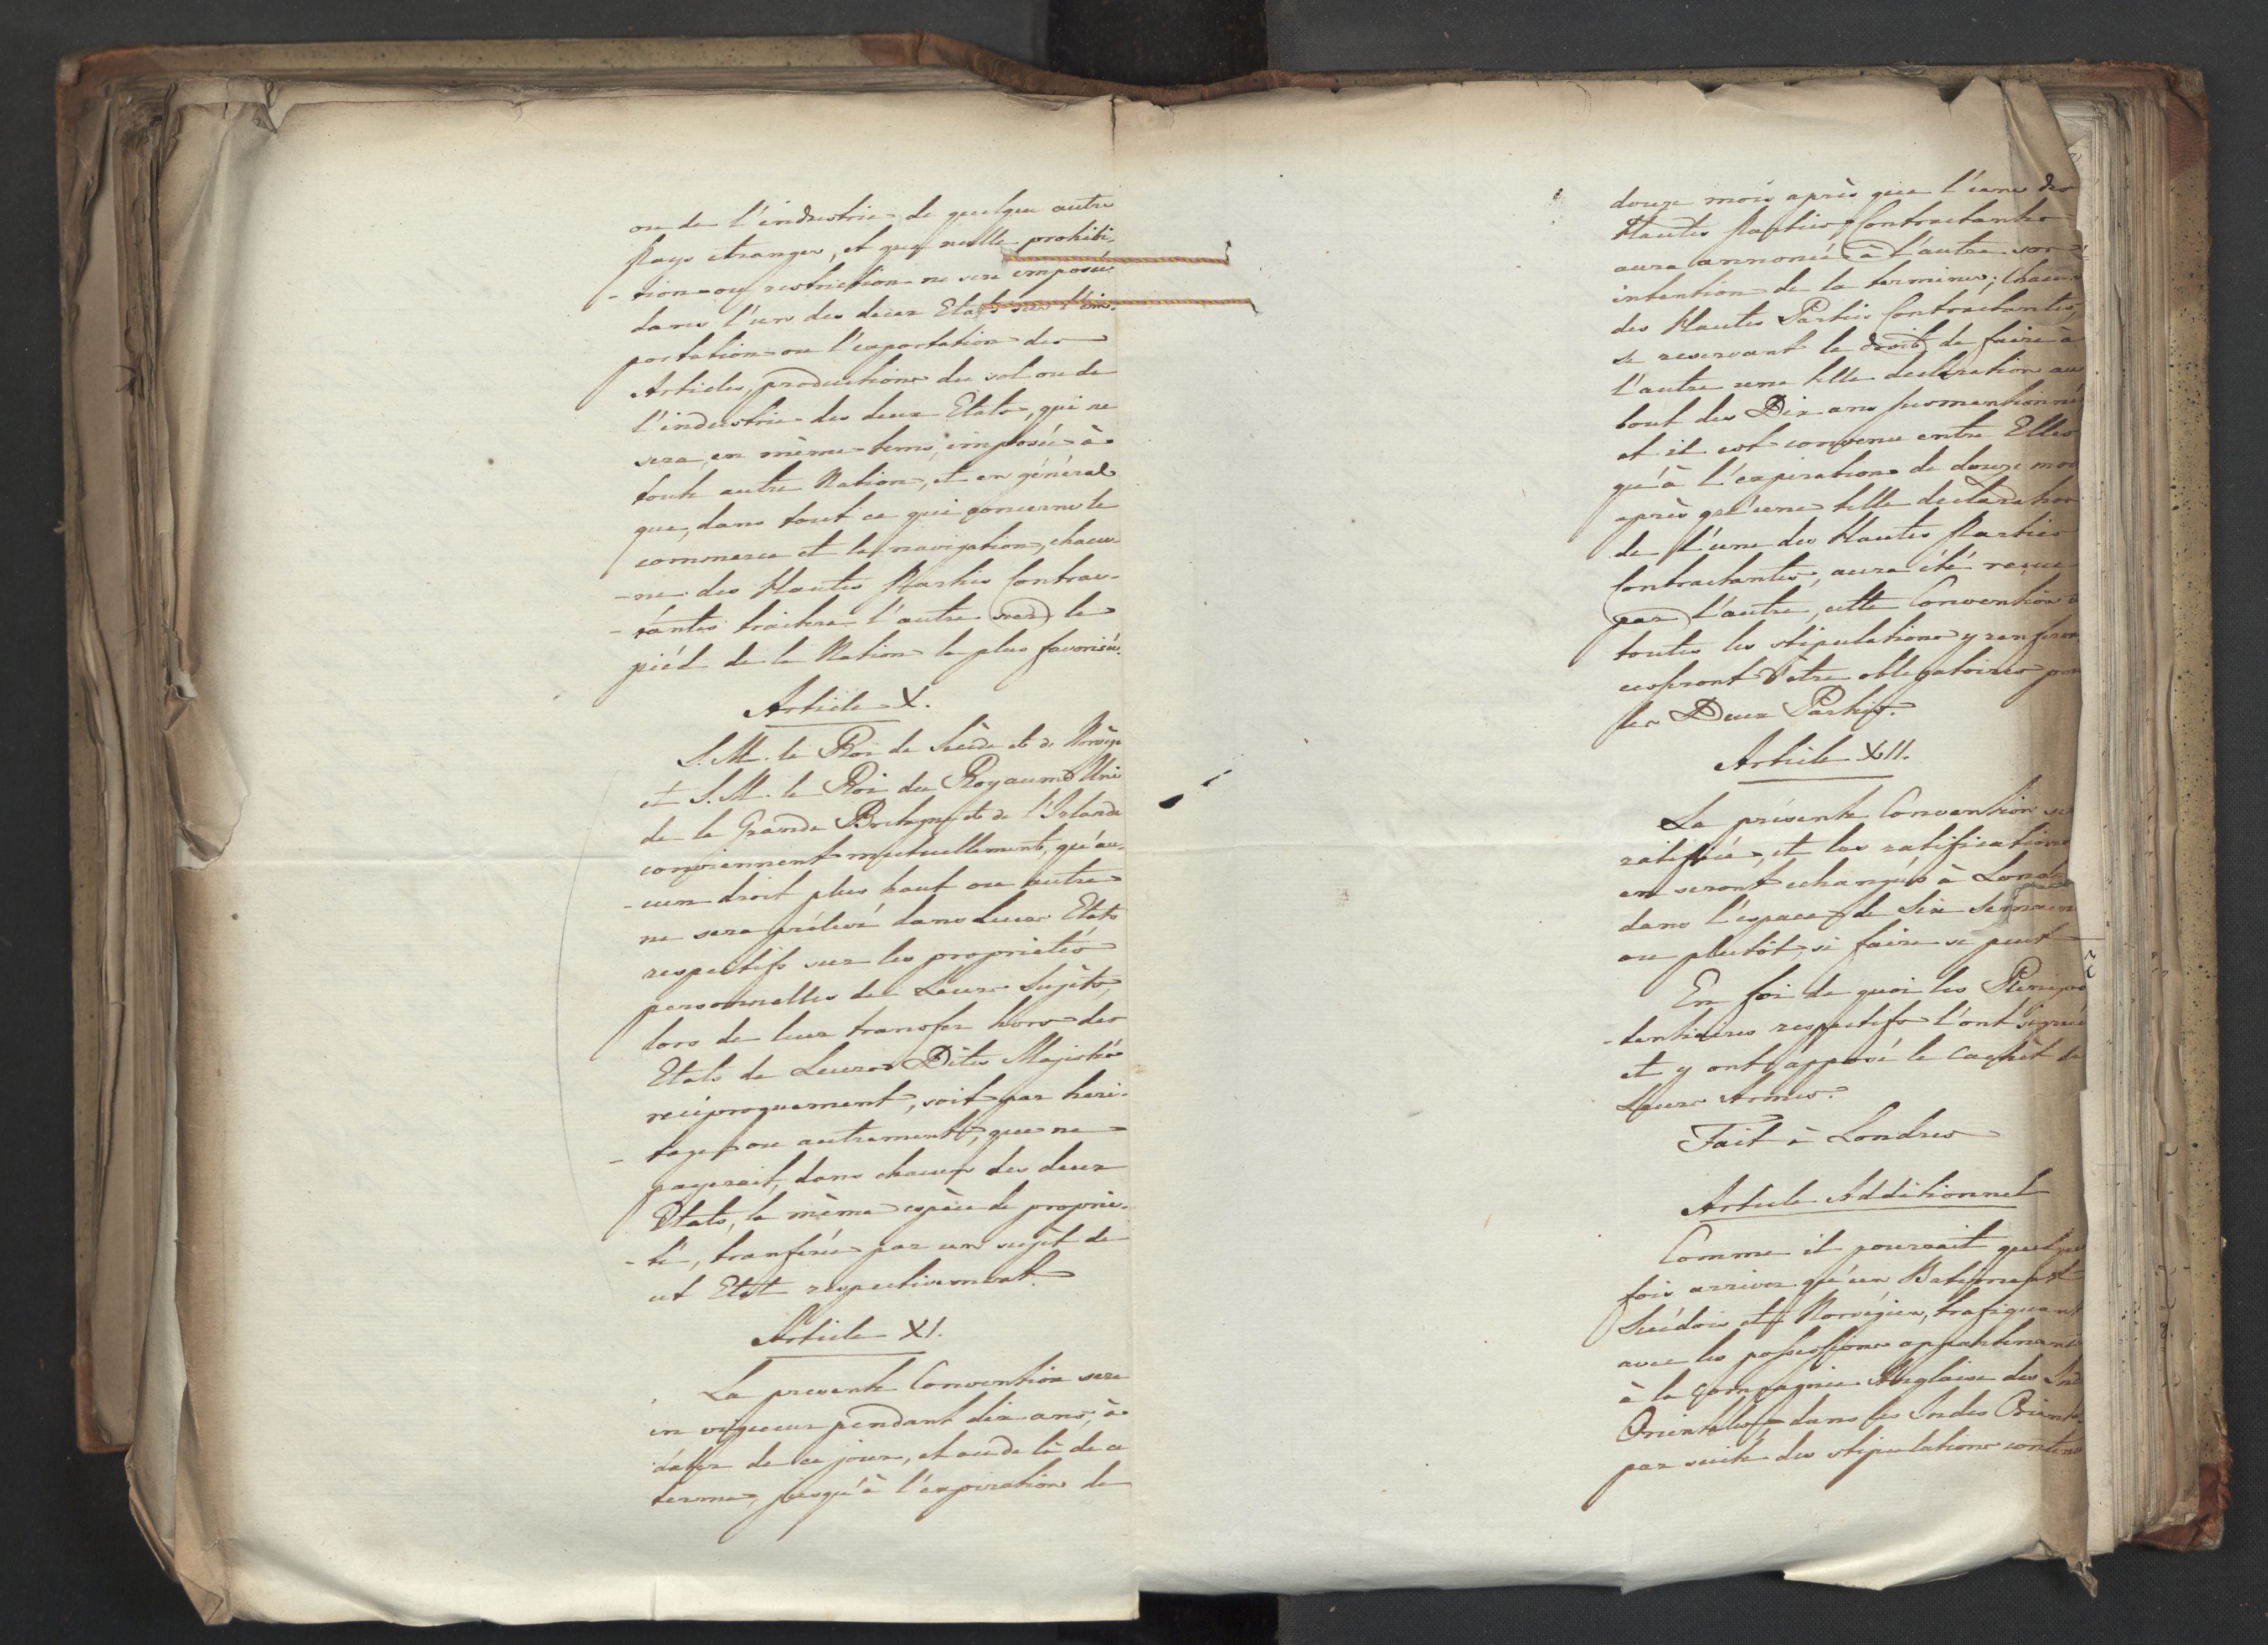 ou de l'industrie de quelque autre
Pays etranger, et que nulle prohibi-
-tion ou restriction ne sera imposée
dans l'un des deux Etats sur l'im-
portation ou l'exportation des
Articles, productions du sol ou de
l'industrie des deux Etats, qui ne
sera, en même-tems, imposée à
toute autre Nation, et en général
que, dans tout ce qui concerne le
commerce et la navigation, chacu-
-ne des Hautes Parties Contrac-
-tantes traitera l'autre sur le
piéd de la Nation la plus favorisée.
Article X.
S. M. le Roi de Suède et de Norvège
et S. M. le Roi du Royaume Uni
de la Grande Bretagne et de l'Irlande
conviennent mutuellement, qu'au-
-cun droit plus haut ou autre
ne sera prélevé dans Leurs Etats
respectifs sur les propriétés
personnelles de Leurs Sujèts,
lors de leur transfer hors des
Etats de Leurs Dites Majestés
reciproquement, soit par heri-
-tage ou autrement, que ne
payerait, dans chacun des deux
Etats, la même espèce de proprie-
-té, tranférée par un sujèt de
cet Etat respectivement.
Article XI.
La presente Convention sera
en vigueur pendant dix ans, à
dater de ce jour, et au de là de ce
terme, jusqu'à l'expiration de
douze mois après que l'une des
Hautes Parties Contractantes
aura annoncé à l'autre son
intention de la terminer; Chacune
des Hautes Parties Contractantes,
se reservant le droit de faire à
l'autre une telle declaration au
bout des Dix ans susmentionné
et il est convenu entre Elles
qu'à l'expiration de douze moi
après qu'une telle declaration
de l'une des Hautes Parties
Contractantes, aura été reçue
par l'autre, cette Convention
toutes les stipulations y renfer
cesseront d'être obligatoires pou
les Deux Parties.
Article XII.
La présente Convention se
ratifiée, et les ratifications
en seront echangés à Lond
dans l'espace de Six Semain
ou plutôt, si faire se peut
En foi de quoi les Plenipo
-tentiaires respectifs l'ont signée
et y ont apposé le Cachèt de
Leurs Armes.
Fait à Londres
Article Additionnel
Comme il pourrait quelque
fois arriver qu'un Batiment
Suédois et Norvégien, trafiquant
avec les possessions appartenant
à la Compagnie Anglaise des Ind
Orientales, dans les Indes Orient
par suite des stipulations conten